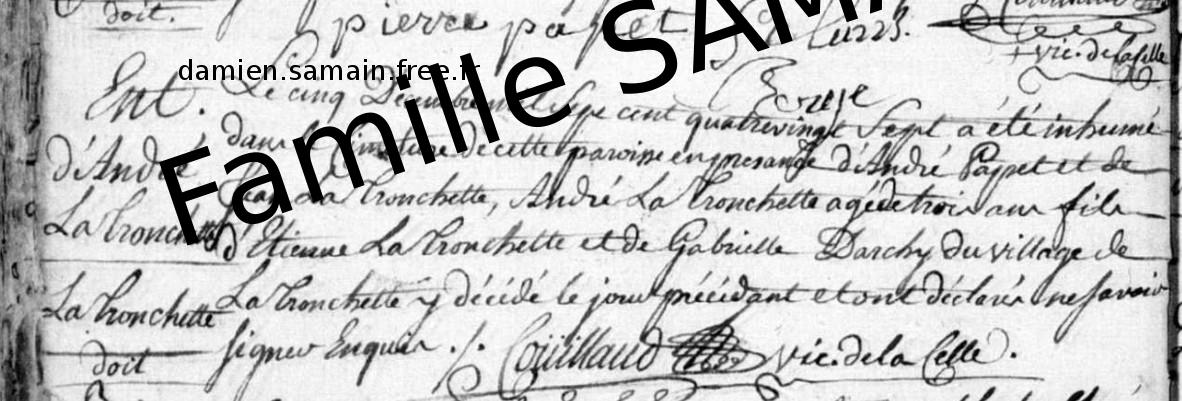 doit.
pierre papet
vic. de la Celle
Famille SAMA
damien.samain.free.fr
Ent.
d'André
La Tronchette
La Tronchette
doit
Le cinq Décembre mil sept cent quatrevingt Sept a été inhumé
dans le Cimetiere de cette paroisse en presance d'André Papet et de
Jean La Tronchette, André La Tronchette agé de trois ans fils
d'Etienne La Tronchette et de Gabrielle Darchy du village de
La Tronchette y décédé le jour précédant et ont déclarés ne savoir
signer Enquis ./. Couillaud vic. de la Celle.